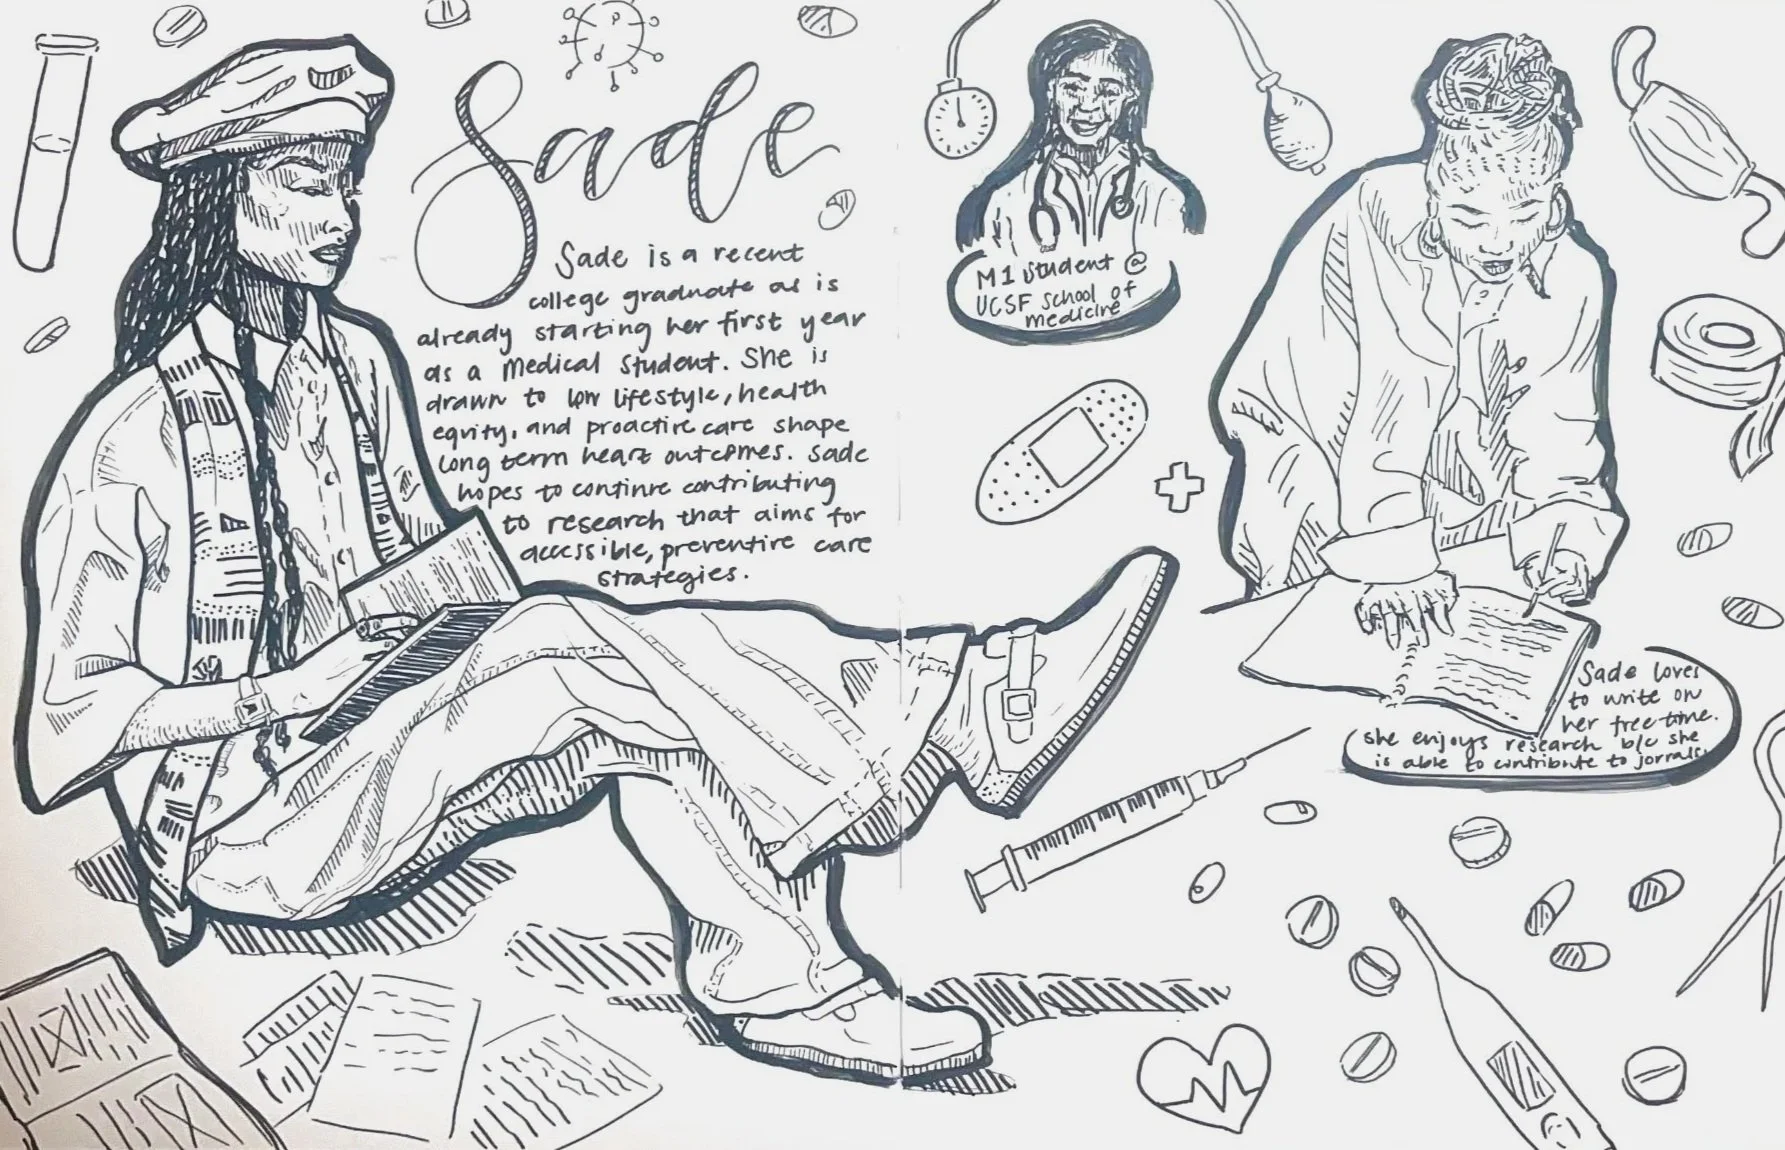 Sade
Sade is a recent
college graduate as is
already starting her first year
as a Medical Student. She is
drawn to how lifestyle, health
equity, and proactive care shape
long term heart outcomes. Sade
hopes to continue contributing
to research that aims for
accessible, preventive care
strategies.
M1 student @
UCSF School of
medicine
Sade loves
to write on
her free time.
she enjoys research b/c she
is able to contribute to jorrals